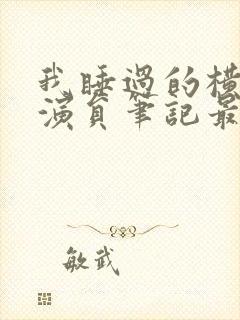 我睡過的橫
演員筆記最
敏武